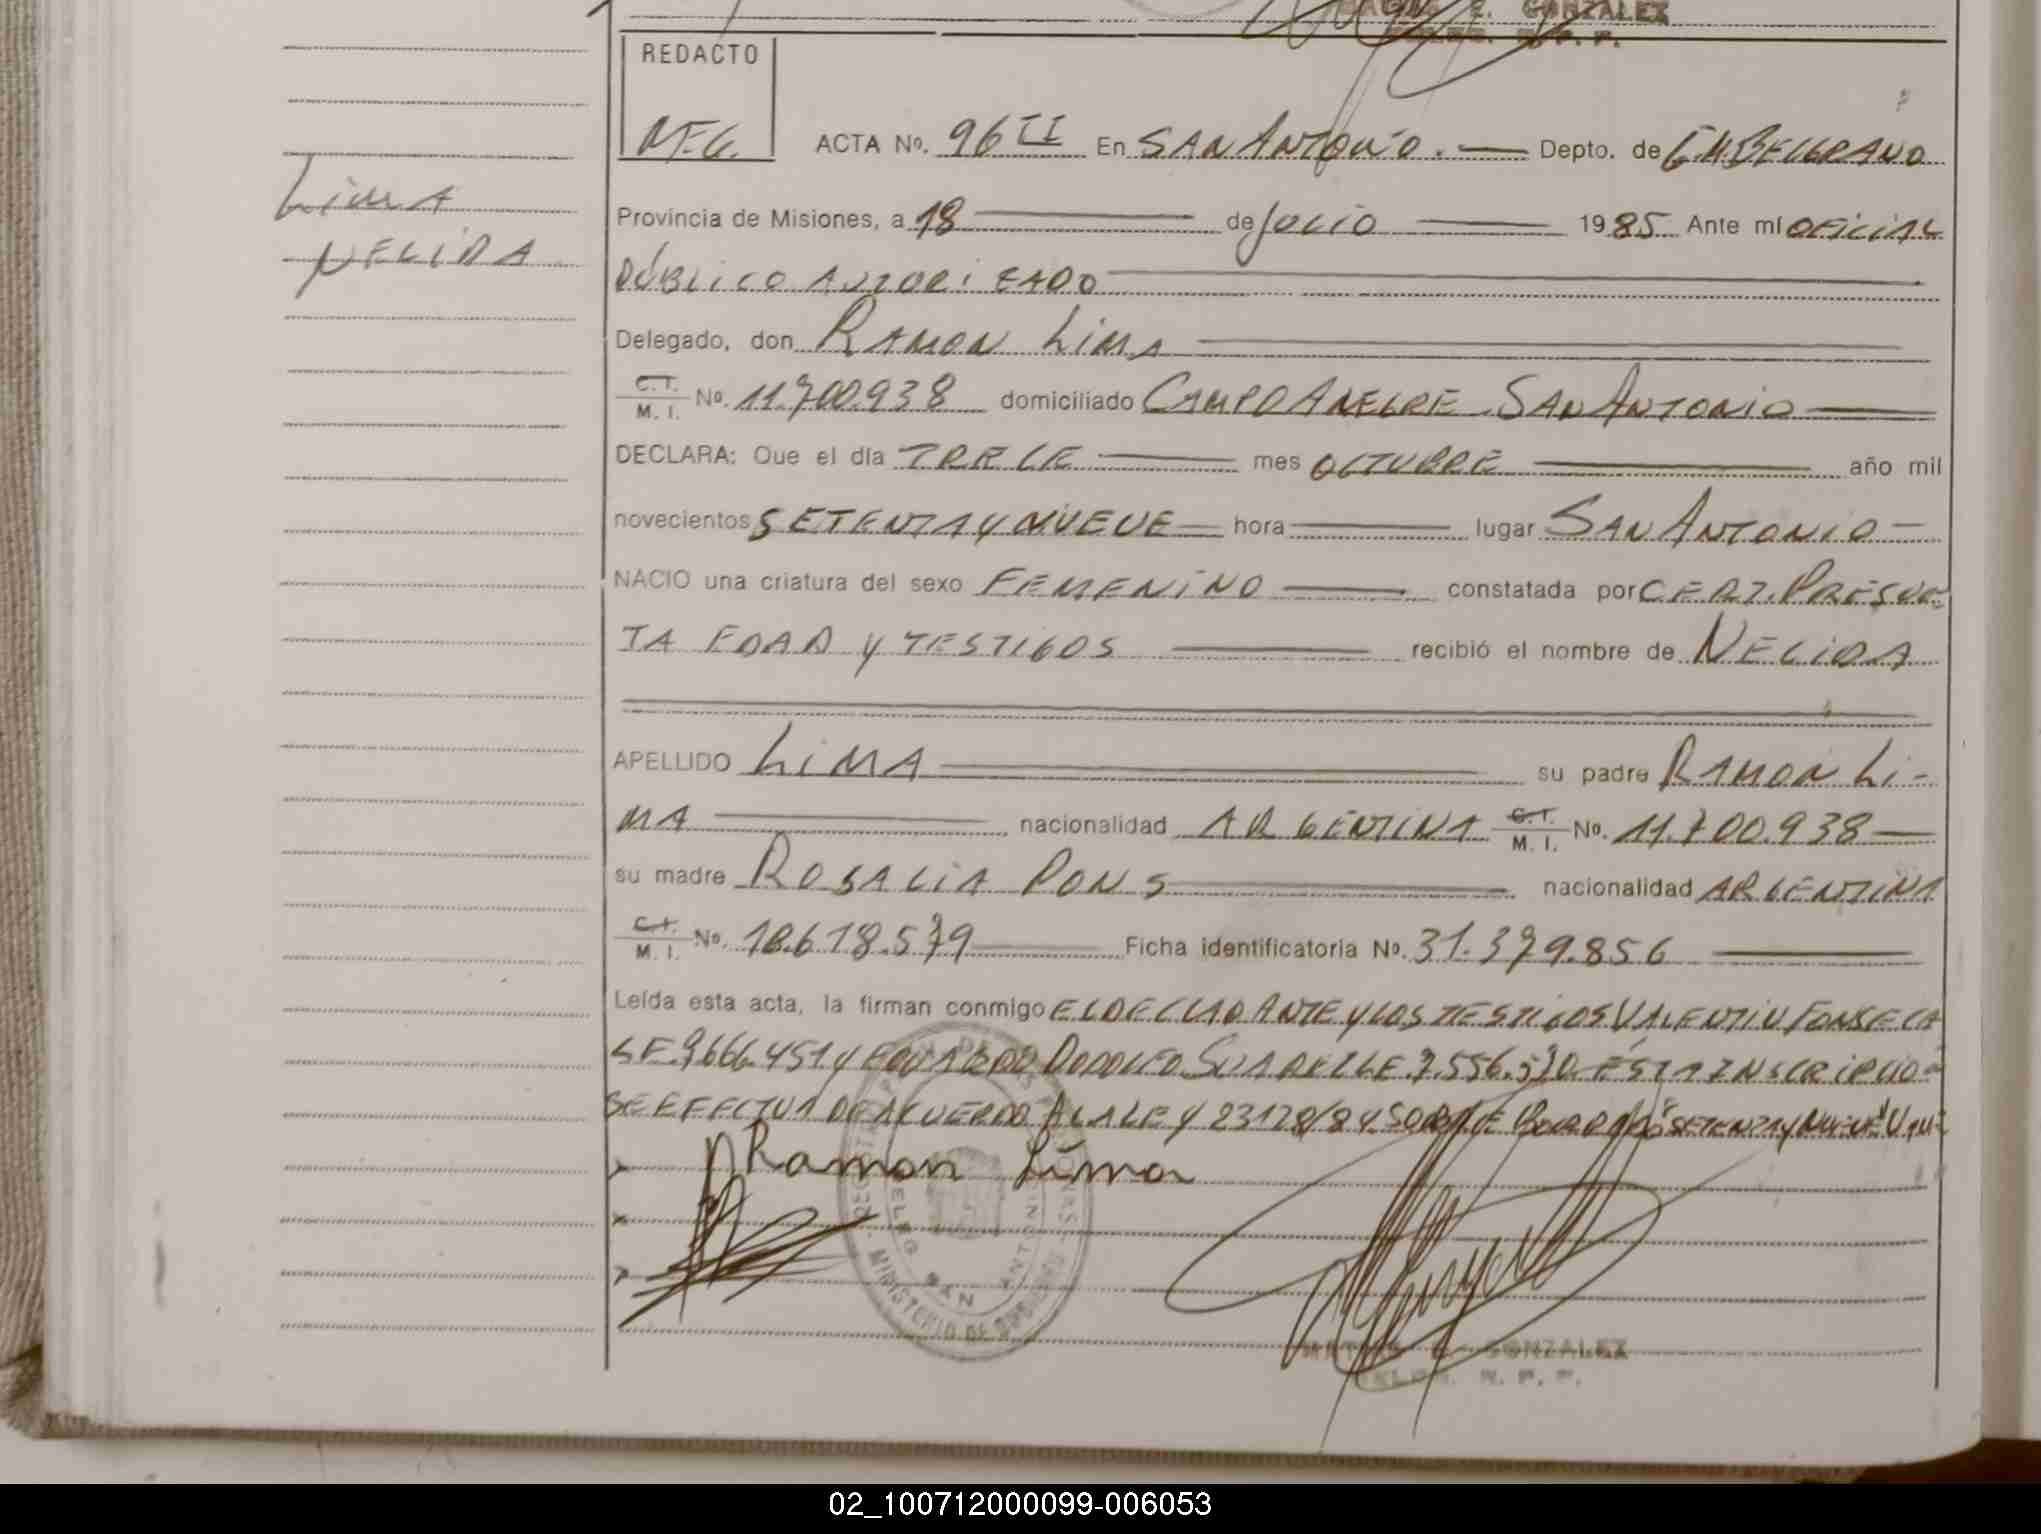 E. GONZALEZ
REDACTO
M.E.G.
ACTA Nº. 96 II En SAN ANTONIO. — Depto. de GM BELGRANO
LIMA
NELIDA
Provincia de Misiones, a 18 — de JULIO — 1985 Ante mí OFICIAL
PÚBLICO AUTORIZADO
Delegado, don RAMON LIMA
C.I. M.I. Nº. 11.700.938 domiciliado CAMPO ALEGRE SAN ANTONIO
DECLARA: Que el día TRECE — mes OCTUBRE — año mil
novecientos SETENTA Y NUEVE — hora — lugar SAN ANTONIO —
NACIO una criatura del sexo FEMENINO — constatada por CERT. PRESUN-
TA EDAD Y TESTIGOS — recibió el nombre de NELIDA
APELLIDO LIMA — su padre RAMON LI-
MA — nacionalidad ARGENTINA C.I. M.I. Nº. 11.700.938 —
su madre ROSALIA PONS — nacionalidad ARGENTINA
C.I. M.I. Nº. 18.618.579 — Ficha identificatoria Nº. 31.379.856 —
Leída esta acta, la firman conmigo EL DECLARANTE Y LOS TESTIGOS VALENTIN FONSECA
7.666.451 Y EDUARDO RODOLFO SUAREZ LE. 7.556.570. ESTA INSCRIPCIO-
SE EFECTUA DE ACUERDO A LA LEY 23128/84 SOBRE BORRADO "SETENTA Y NUEVE" VALE
Ramon Lima
MINISTERIO DE GOBIERNO
DELEG. SAN ANTONIO
GONZALEZ
R. P. P.
02_100712000099-006053